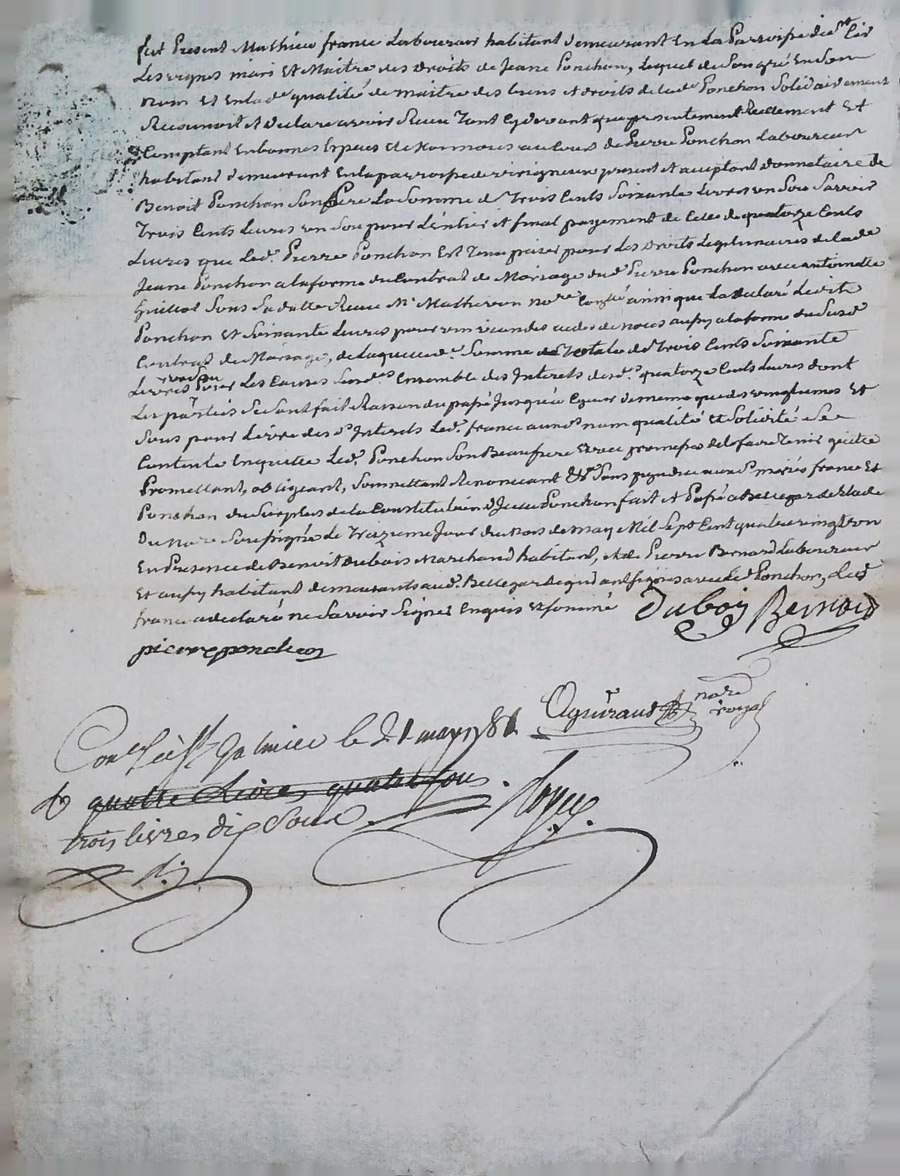 fut Present Mathieu france Laboureur habitant demeurant En La Parroisse de St Cir
Les vignes mari Et Maitre des Droits de Jeanne Ponchon, Lequel de Son gré En Son
nom Et En lade qualité de maitre des biens et droits de lade Ponchon Solidairement
Reconnoit et declare avoir Reçu Tant Cydevant que presentement Reellement Et
Comptant En bonnes Especes et de Pierre Ponchon Laboureur
habitant demeurant En la parroisse de present et acceptant donnataire de
Benoit Ponchon Son Pere La Somme de Trois Cents Soixante Livres un Sou Savoir
Trois Cents Livres un Sou pour L'entier et final payement de Celle de quatorze Cents
Livres que Led. Pierre Ponchon Est Tenu païer pour Les Droits Legitimaires de lade
Jeane Ponchon a la forme du Contrat de Mariage dud Pierre Ponchon avec antoinette
Guillot Sous Sa datte Reçu Me Matheron nore ainsi que La declaré Ledit
Ponchon Et Soixante Livres pour aussy a la forme du Susd
Contrat de Mariage, de laquelle de. Somme Totale de Trois Cents Soixante
Livres un Sou pour Les Causes Susdes Ensemble des Interets des d. quatorze Cents Livres dont
Les parties Se Sont fait Raison du passé Jusqu'a Ce jour de meme que des vingtiemes Et
Sous pour Livre des d. Interets Led. france aud nom qualité et Solidité Se
Contente Enquitte Led. Ponchon Son Beaufrere Et avec promesse de le faire Tenir quitte
Promettant, obligeant, Soumettant Renoncant &c Sans prejudice aux d. mariés france Et
Ponchon du Surplus de la Constitution d'Icelle Ponchon fait et Passé a Bellegarde Etude
Du Nore Soussigné Le Treizieme Jour du mois de may Mil Sept Cent quatre vingt un
En Presence de Benoit Dubois Marchand habitant, et de Pierre Bernard Laboureur
Et aussy habitant demeurants aud. Bellegarde qui ont signés avec led Ponchon, Led
france a declaré ne Savoir Signer Enquis Et Sommé Duboy Bernard
pierre ponchon
nore
royal
Conlé à St Galmier le 21 may 1781
quatre Livres quatre sous
trois livres dix Sous